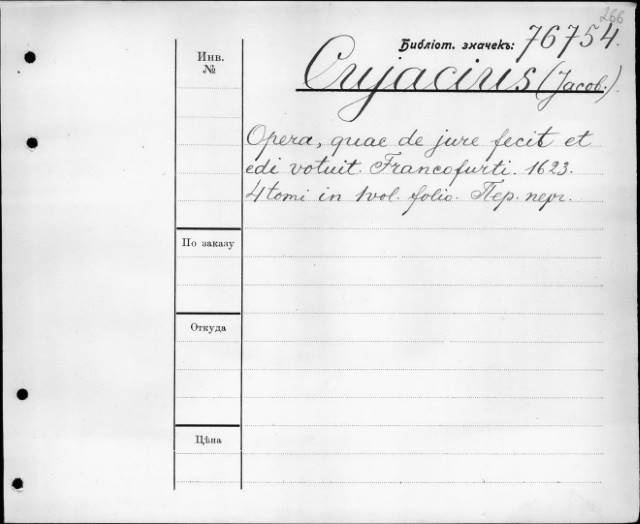 266
Библіот. значекъ: 76754.
Инв. №
Cujacius (Jacob.).
Opera, quae de jure fecit et
edi votuit. Francofurti. 1623.
4 tomi in 1 vol. folio. Пер. перг.
По заказу
Откуда
Цѣна